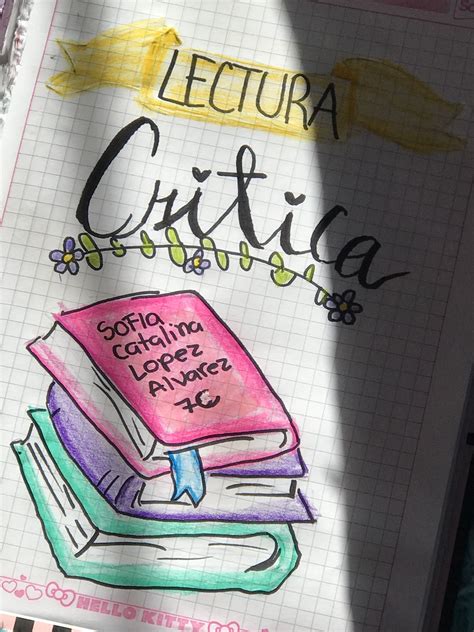 LECTURA
Critica
SOFIA
Catalina
LOPEZ
Alvarez
7C
HELLO KITTY